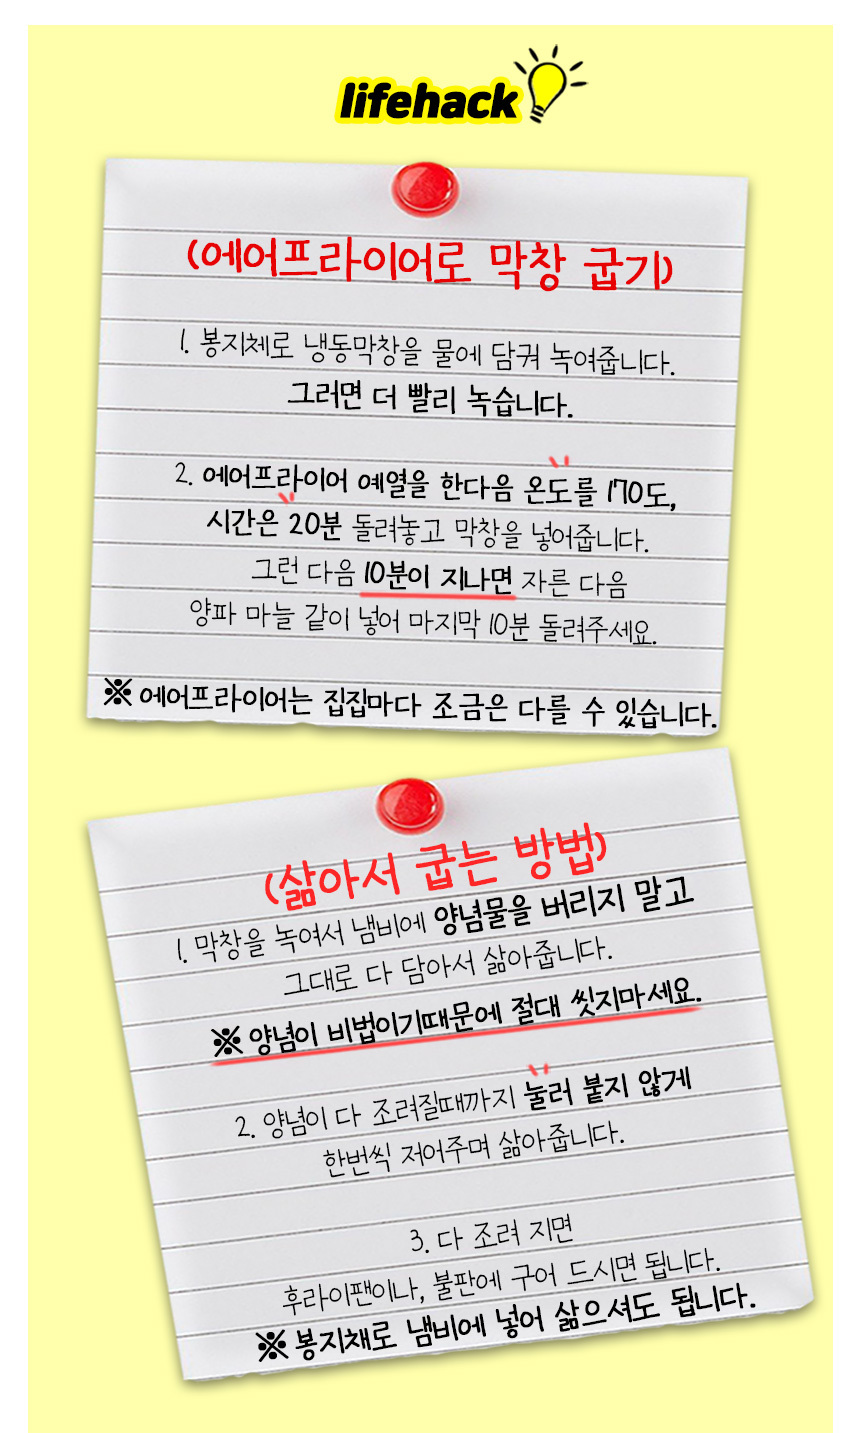 lifehack
(에어프라이어로 막창 굽기)
1. 봉지체로 냉동막창을 물에 담궈 녹여줍니다.
그러면 더 빨리 녹습니다.
2. 에어프라이어 예열을 한다음 온도를 170도,
시간은 20분 돌려놓고 막창을 넣어줍니다.
그런 다음 10분이 지나면 자른 다음
양파 마늘 같이 넣어 마지막 10분 돌려주세요.
※ 에어프라이어는 집집마다 조금은 다를 수 있습니다.
(삶아서 굽는 방법)
1. 막창을 녹여서 냄비에 양념물을 버리지 말고
그대로 다 담아서 삶아줍니다.
※ 양념이 비법이기때문에 절대 씻지마세요.
2. 양념이 다 조려질때까지 눌러 붙지 않게
한번씩 저어주며 삶아줍니다.
3. 다 조려 지면
후라이팬이나, 불판에 구어 드시면 됩니다.
※ 봉지채로 냄비에 넣어 삶으셔도 됩니다.